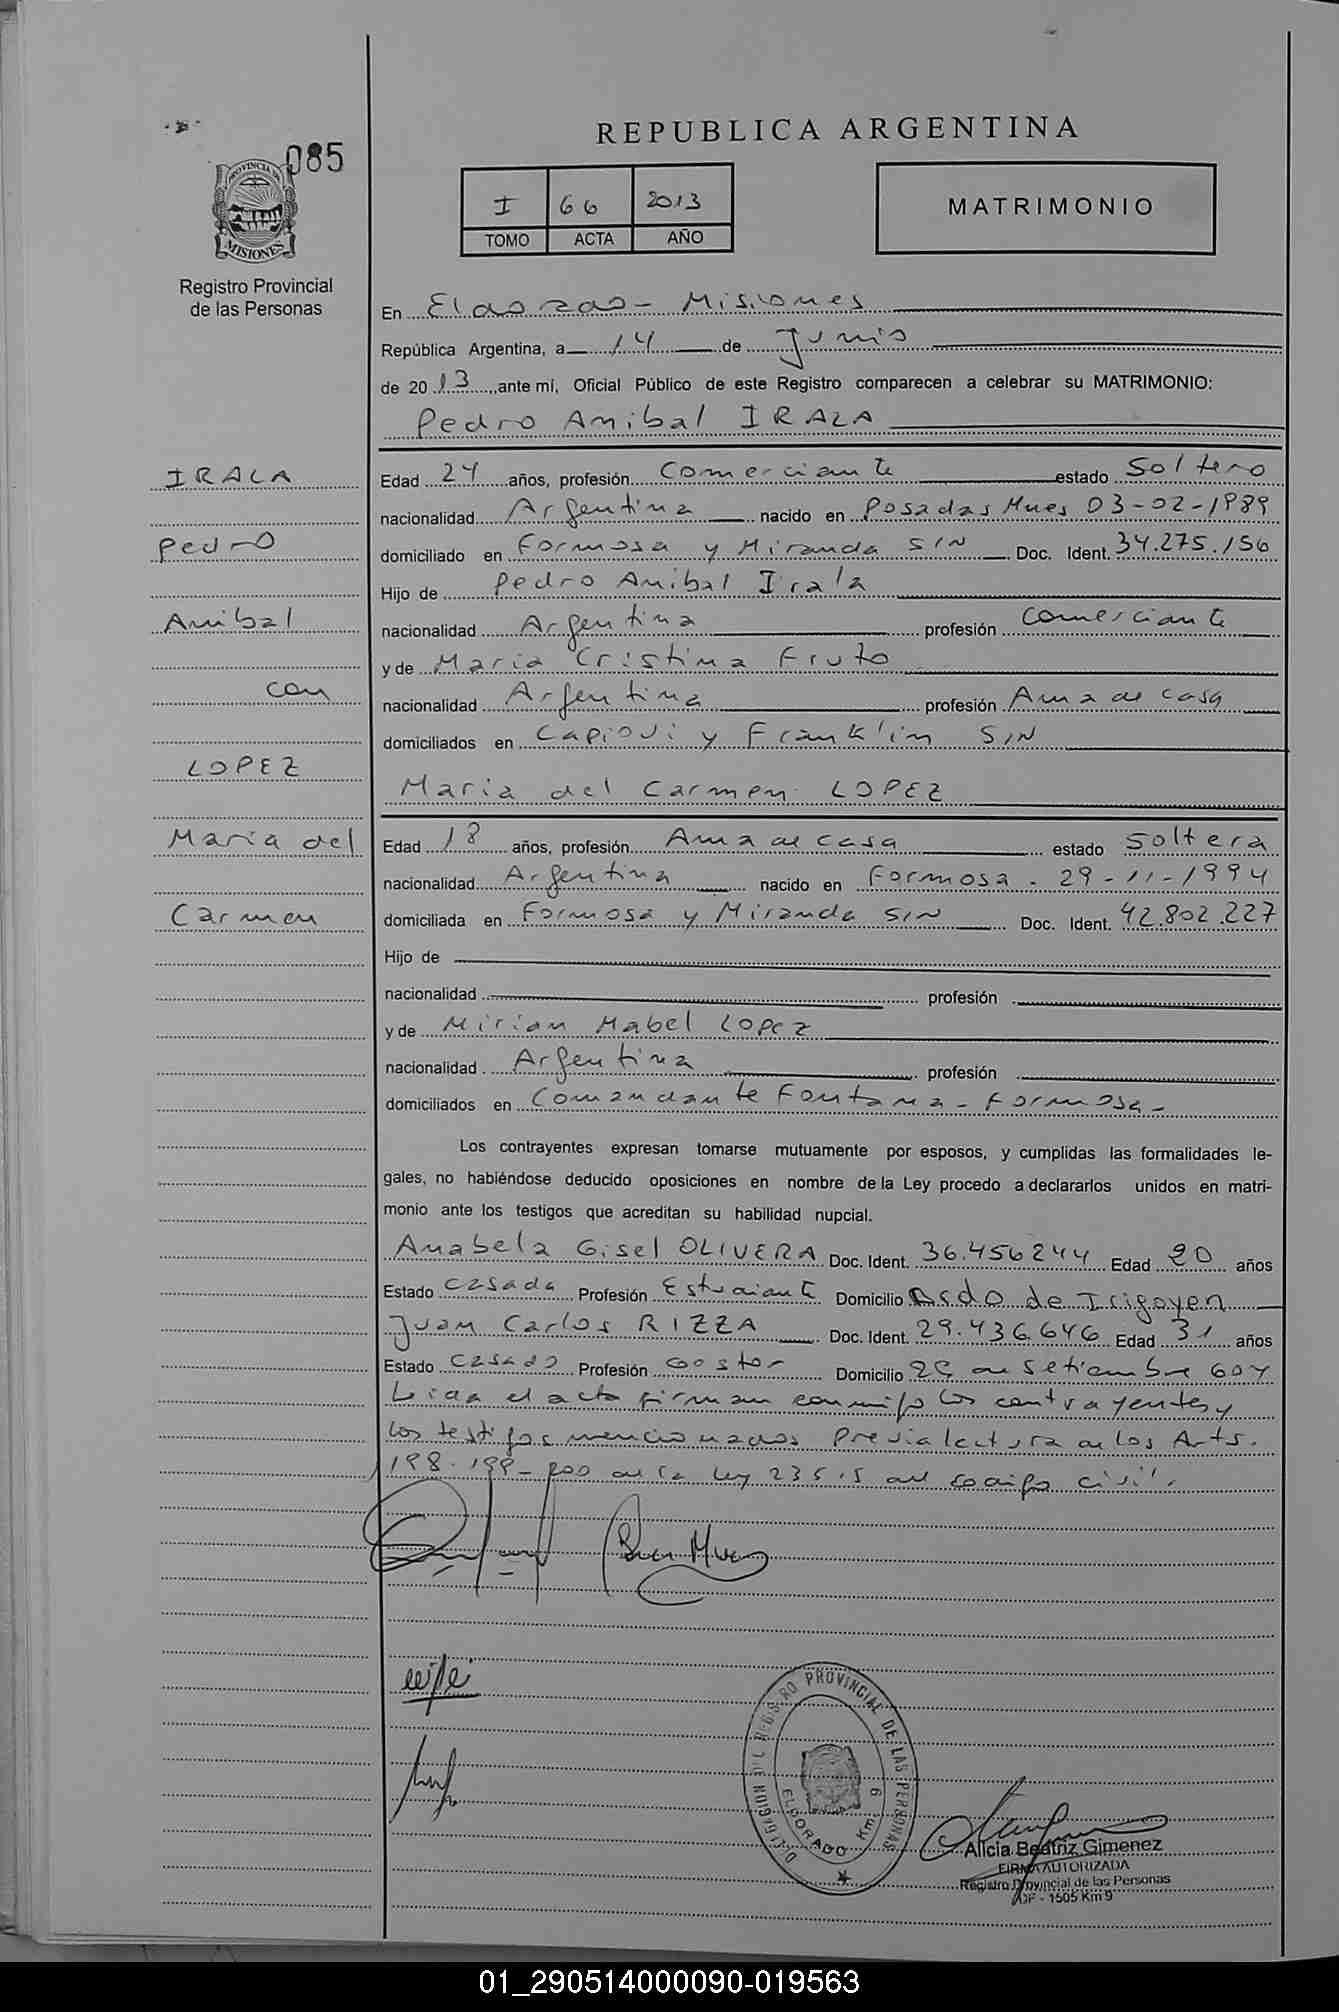 085
PROVINCIA DE
MISIONES
Registro Provincial
de las Personas
REPUBLICA ARGENTINA
I 66 2013
TOMO ACTA AÑO
MATRIMONIO
En Eldorado - Misiones
República Argentina, a 14 de Junio
de 2013, ante mí, Oficial Público de este Registro comparecen a celebrar su MATRIMONIO:
Pedro Anibal IRALA
IRALA
Pedro
Anibal
con
LOPEZ
Maria del
Carmen
Edad 24 años, profesión Comerciante estado Soltero
nacionalidad Argentina nacido en Posadas Mnes 03-02-1989
domiciliado en Formosa y Miranda S/N Doc. Ident. 34.275.156
Hijo de Pedro Anibal Irala
nacionalidad Argentina profesión Comerciante
y de Maria Cristina Fruto
nacionalidad Argentina profesión Ama de casa
domiciliados en Capiovi y Franklin S/N
Maria del Carmen LOPEZ
Edad 18 años, profesión Ama de casa estado Soltera
nacionalidad Argentina nacido en Formosa - 29-11-1994
domiciliada en Formosa y Miranda S/N Doc. Ident. 42.802.227
Hijo de
nacionalidad profesión
y de Mirian Mabel Lopez
nacionalidad Argentina profesión
domiciliados en Comandante Fontana - Formosa -
Los contrayentes expresan tomarse mutuamente por esposos, y cumplidas las formalidades le-
gales, no habiéndose deducido oposiciones en nombre de la Ley procedo a declararlos unidos en matri-
monio ante los testigos que acreditan su habilidad nupcial.
Anabela Gisel OLIVERA Doc. Ident. 36.456244 Edad 20 años
Estado Casada Profesión Estudiante Domicilio Bsdo de Irigoyen
Juan Carlos RIZZA Doc. Ident. 29.436.646 Edad 31 años
Estado Casado Profesión Domicilio de Setiembre 604
Leida el acta firman conmigo los contrayentes y
los testigos mencionados Previa lectura de los Arts.
198-199-200 de la Ley 23515 del Codigo Civil.
DELEGACION DEL REGISTRO PROVINCIAL DE LAS PERSONAS
ELDORADO Km.
Alicia Beatriz Gimenez
FIRMA AUTORIZADA
Registro Provincial de las Personas
OF - 1505 Km 9
01_290514000090-019563